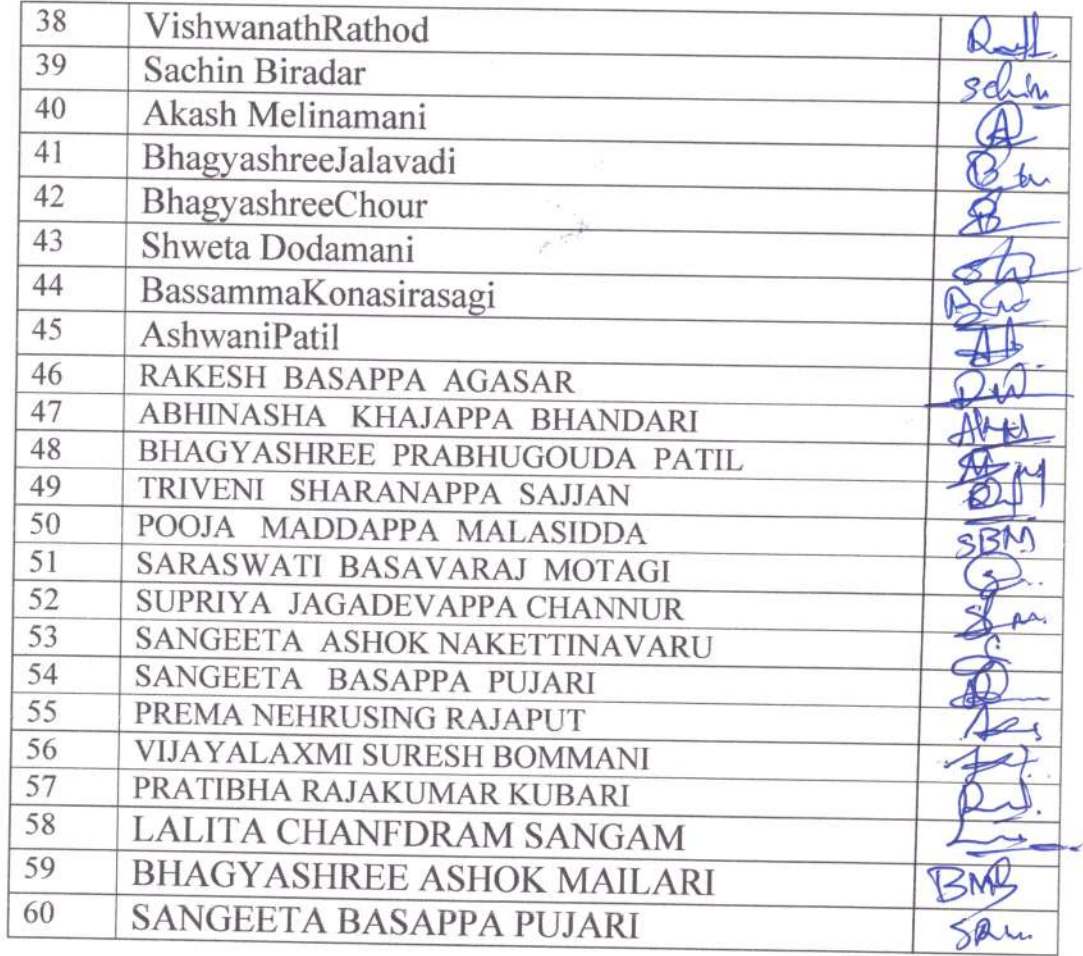 38 VishwanathRathod
39 Sachin Biradar schin
40 Akash Melinamani A
41 BhagyashreeJalavadi
42 BhagyashreeChour B
43 Shweta Dodamani
44 BassammaKonasirasagi
45 AshwaniPatil
46 RAKESH BASAPPA AGASAR
47 ABHINASHA KHAJAPPA BHANDARI
48 BHAGYASHREE PRABHUGOUDA PATIL
49 TRIVENI SHARANAPPA SAJJAN
50 POOJA MADDAPPA MALASIDDA SBM
51 SARASWATI BASAVARAJ MOTAGI
52 SUPRIYA JAGADEVAPPA CHANNUR
53 SANGEETA ASHOK NAKETTINAVARU
54 SANGEETA BASAPPA PUJARI
55 PREMA NEHRUSING RAJAPUT
56 VIJAYALAXMI SURESH BOMMANI
57 PRATIBHA RAJAKUMAR KUBARI
58 LALITA CHANFDRAM SANGAM
59 BHAGYASHREE ASHOK MAILARI BMB
60 SANGEETA BASAPPA PUJARI